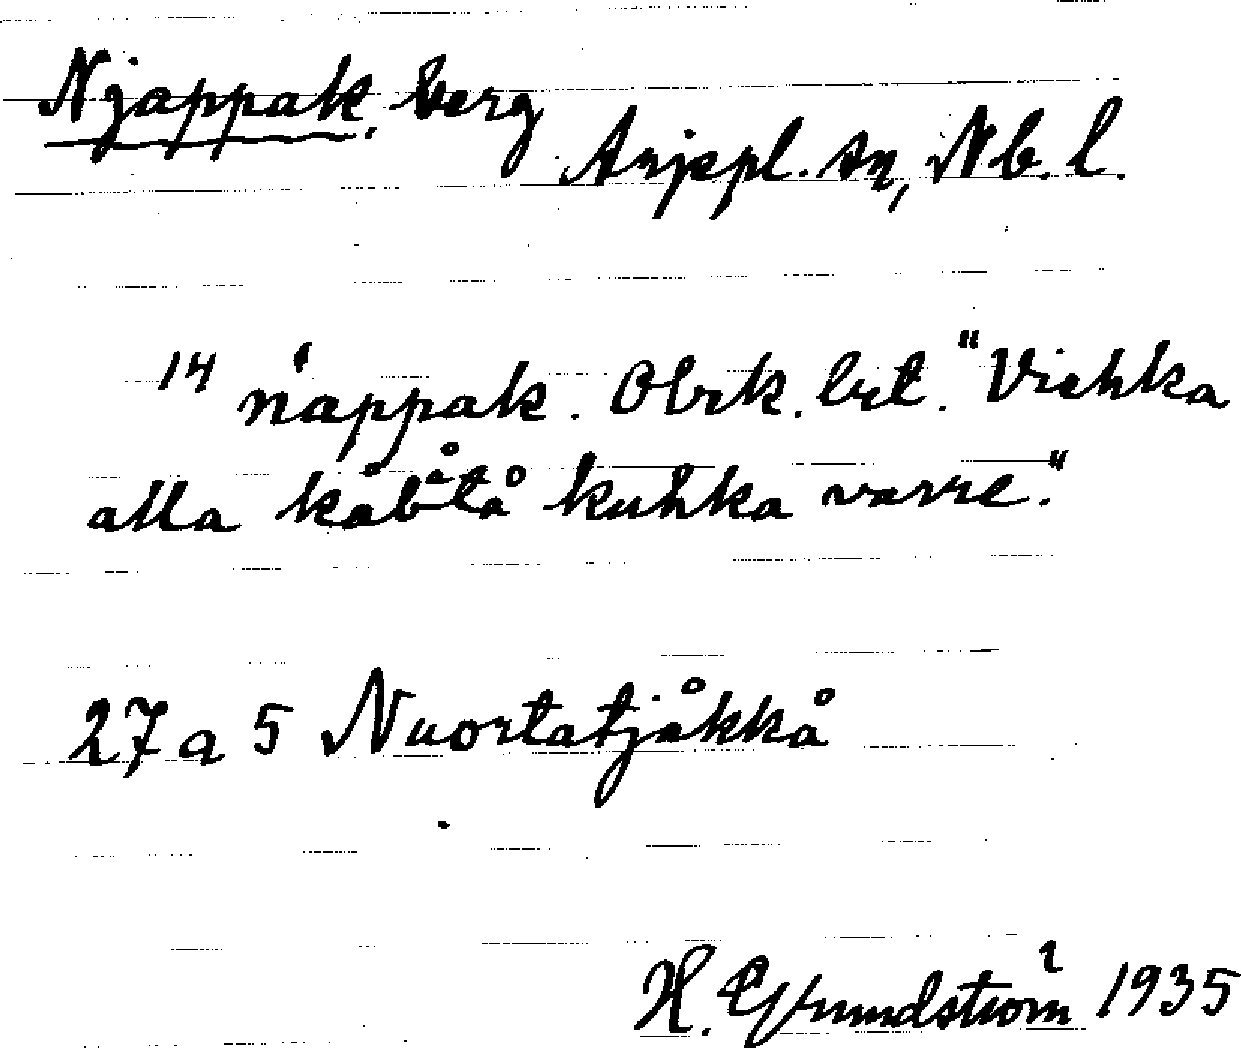 Njappak. berg
Arjepl. sn, Nb. l.
14 n'áppak. Obrk. bet. "Viehka
alla kåbˈtå kuhka varre."
27 a 5 Nuortatjåkkå
H. Grundström 1935